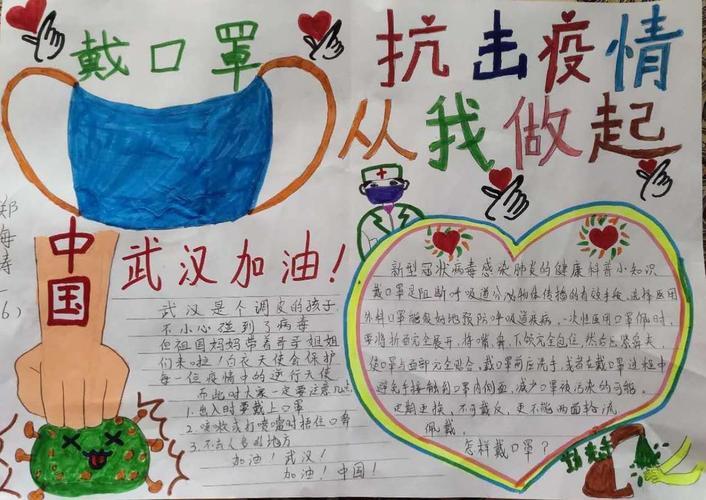 戴口罩
抗击疫情
从我做起
郑海涛
一
6)
中国
武汉加油!
武汉是个调皮的孩子
不小心碰到了病毒
但祖国妈妈带着哥哥姐姐
们来啦!白衣天使会保护
每一位疫情中的逆行天使
而此时大家一定要注意几点
1.出入时要戴上口罩
2.咳嗽或打喷嚏时捂住口鼻
3.不去人多的地方
加油!武汉!
加油!中国!
新型冠状病毒感染肺炎的健康科普小知识
戴口罩是阻断呼吸道分泌物传播的有效手段,选择医用
外科口罩能良好地预防呼吸道疾病,一次性医用口罩佩戴时,
要将折面完全展开,将嘴、鼻、下颌完全包住,然后压紧鼻夹,
使口罩与面部完全贴合,戴口罩前后洗手,或者在戴口罩过程中
避免手接触到口罩内侧面,减少口罩被污染的可能。
定期更换,不可戴反,更不能两面轮流
佩戴。
怎样戴口罩?